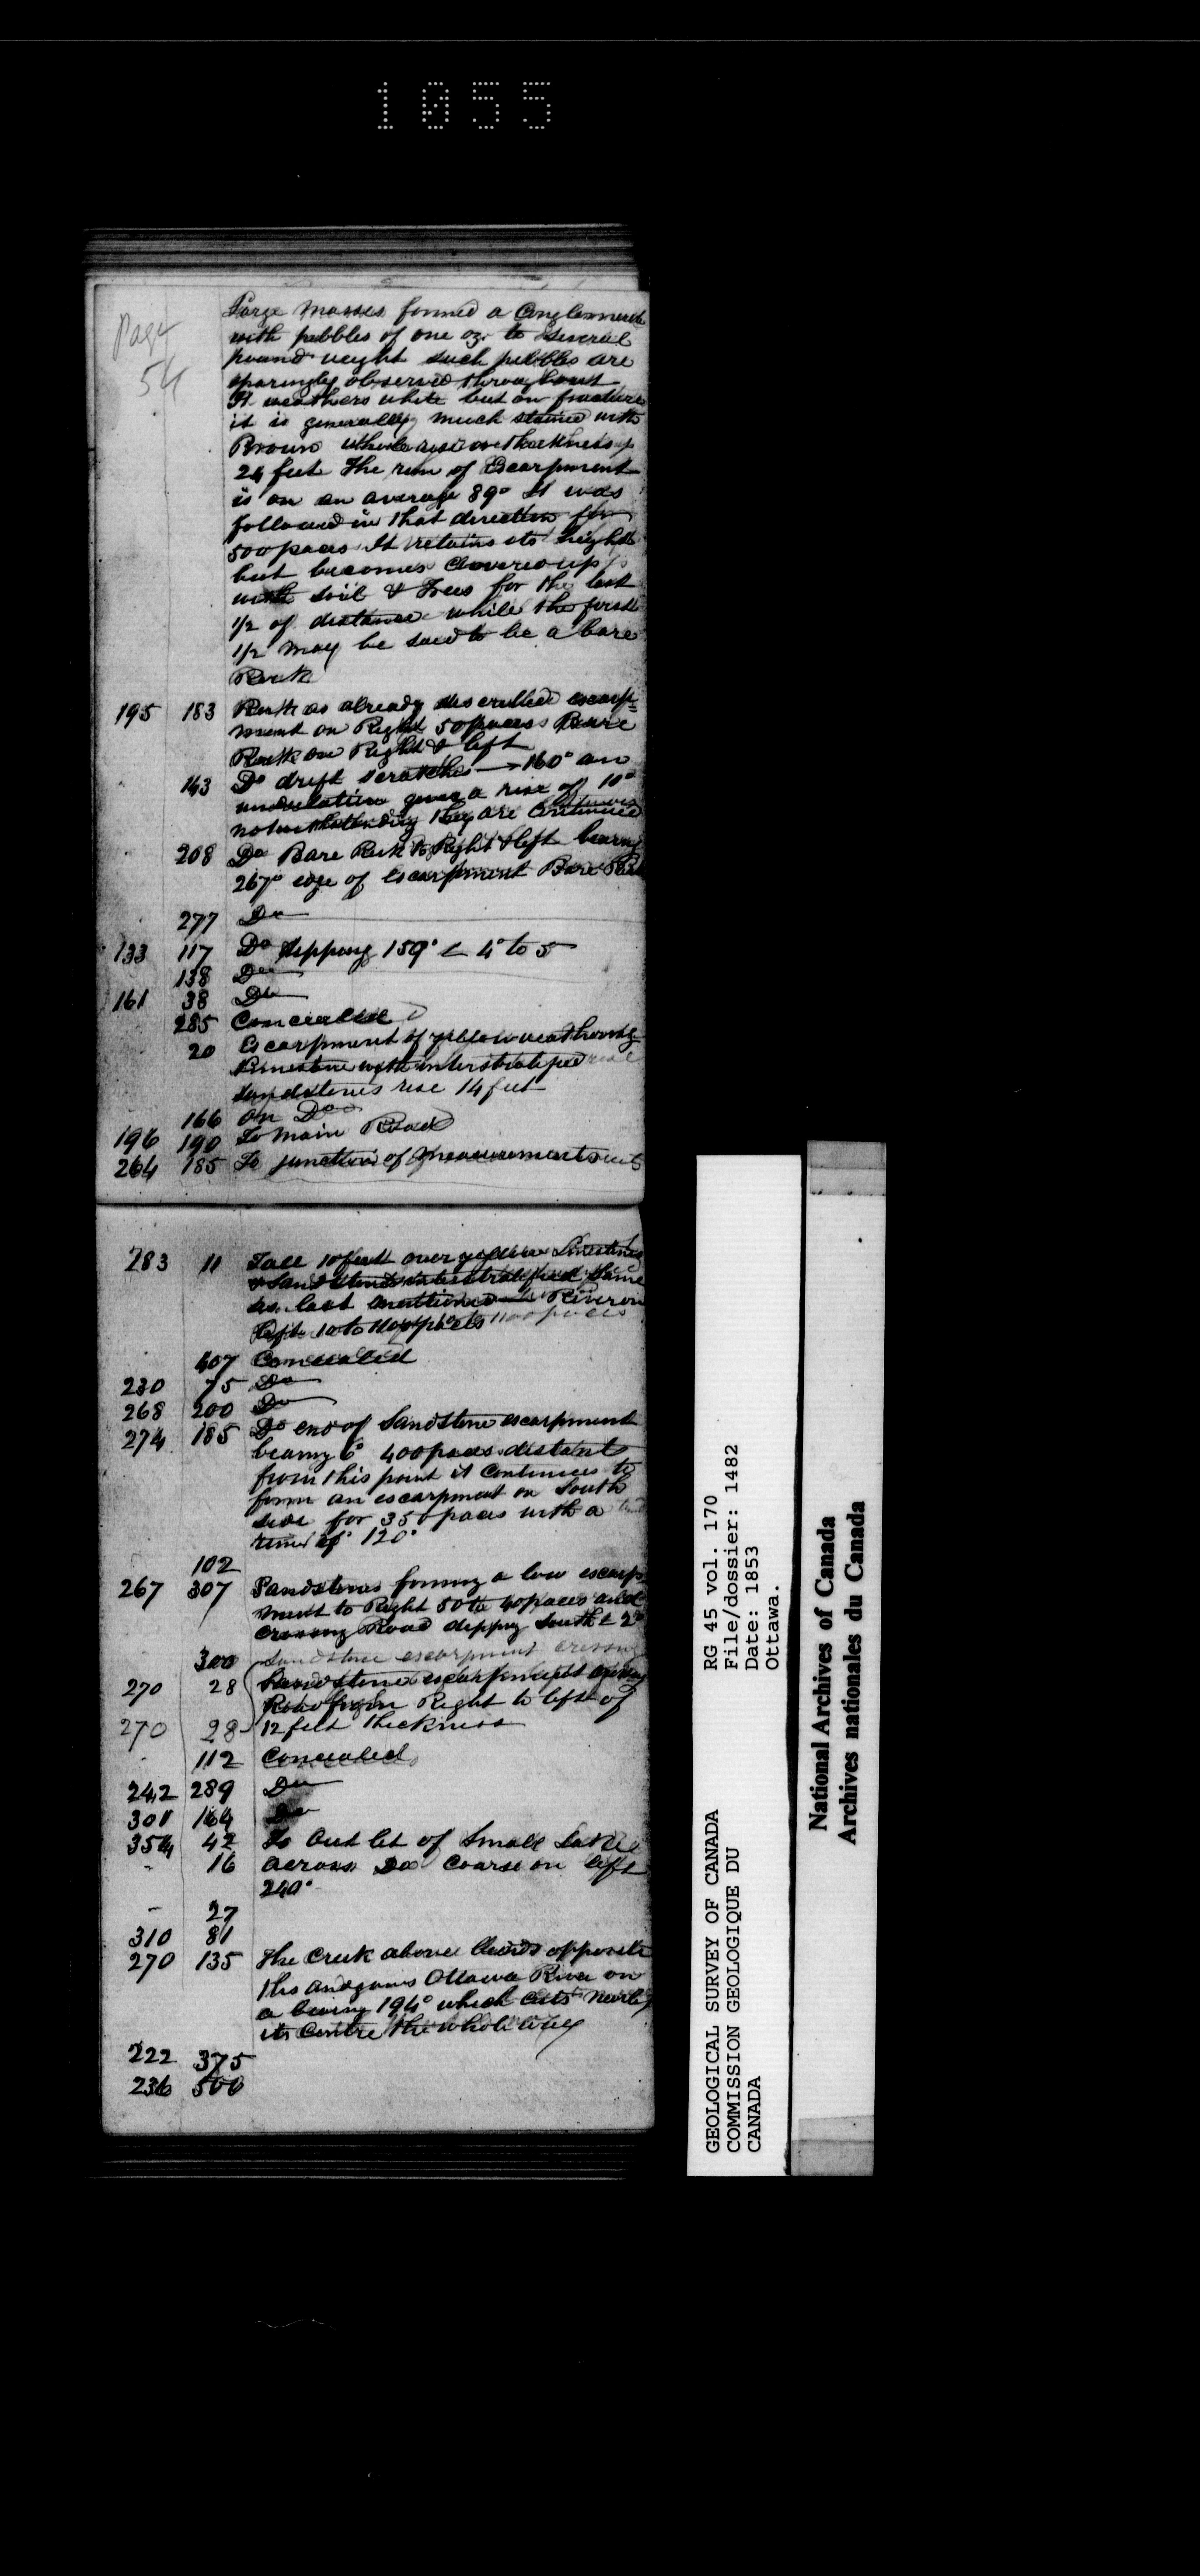 1055
Page
54
Large masses formed a Conglomerate
with pebbles of one oz. to several
pound weight such pebbles are
sparingly observed throughout
It weathers white but on fracture
it is generally much stained with
Brown whole rise or thickness
24 feet The run of Escarpment
is on an average 89° It was
followed in that direction for
500 paces It retains its height
but becomes covered up
with soil & Trees for the last
1/2 of distance while the first
1/2 may be said to be a bare
Rock
195 183 Rock as already described escarp-
ment on Right 50 paces Bare
Rock on Right & left
143 Do drift scratches → 160° an
undulation gives a rise of 10°
notwithstanding they are continued
208 Do Bare Rock to Right & left bearing
267° edge of escarpment Bare Rock
277 Do
133 117 Do dipping 159° ∠ 4° to 5
138 Do
161 38 Do
285 Concealed
20 Escarpment of yellow weathering
limestone with interstratified
sandstones rise 14 feet
166 on Do
196 190 To main Road
264 185 To junction of measurements
283 11 Fall 10 feet over yellow Limestones
& Sandstones interstratified same
as last mentioned River on
left 10 to 1100 paces
407 Concealed
230 75 Do
268 200 Do
274 185 Do end of Sandstone escarpment
bearing 6° 400 paces distant
from this point it continues to
form an escarpment on South
side for 350 paces with a
run of 120°
102
267 307 Sandstones forming a low escarp-
ment to Right 50 to 40 paces and
crossing Road dipping South ∠ 2°
300 Sandstone escarpment crossing
270 28 Sandstone escarpment crossing
Road from Right to left of
270 28 12 feet thickness
112 Concealed
242 289 Do
301 164 Do
354 42 To Outlet of Small Lake
16 across Do Course on left
240°
27
310 81
270 135 The Creek above bends opposite
this and joins Ottawa River on
a bearing 194° which cuts nearly
its centre the whole way
222 375
236 500
GEOLOGICAL SURVEY OF CANADA
COMMISSION GEOLOGIQUE DU
CANADA
RG 45 vol. 170
File/dossier: 1482
Date: 1853
Ottawa.
National Archives of Canada
Archives nationales du Canada